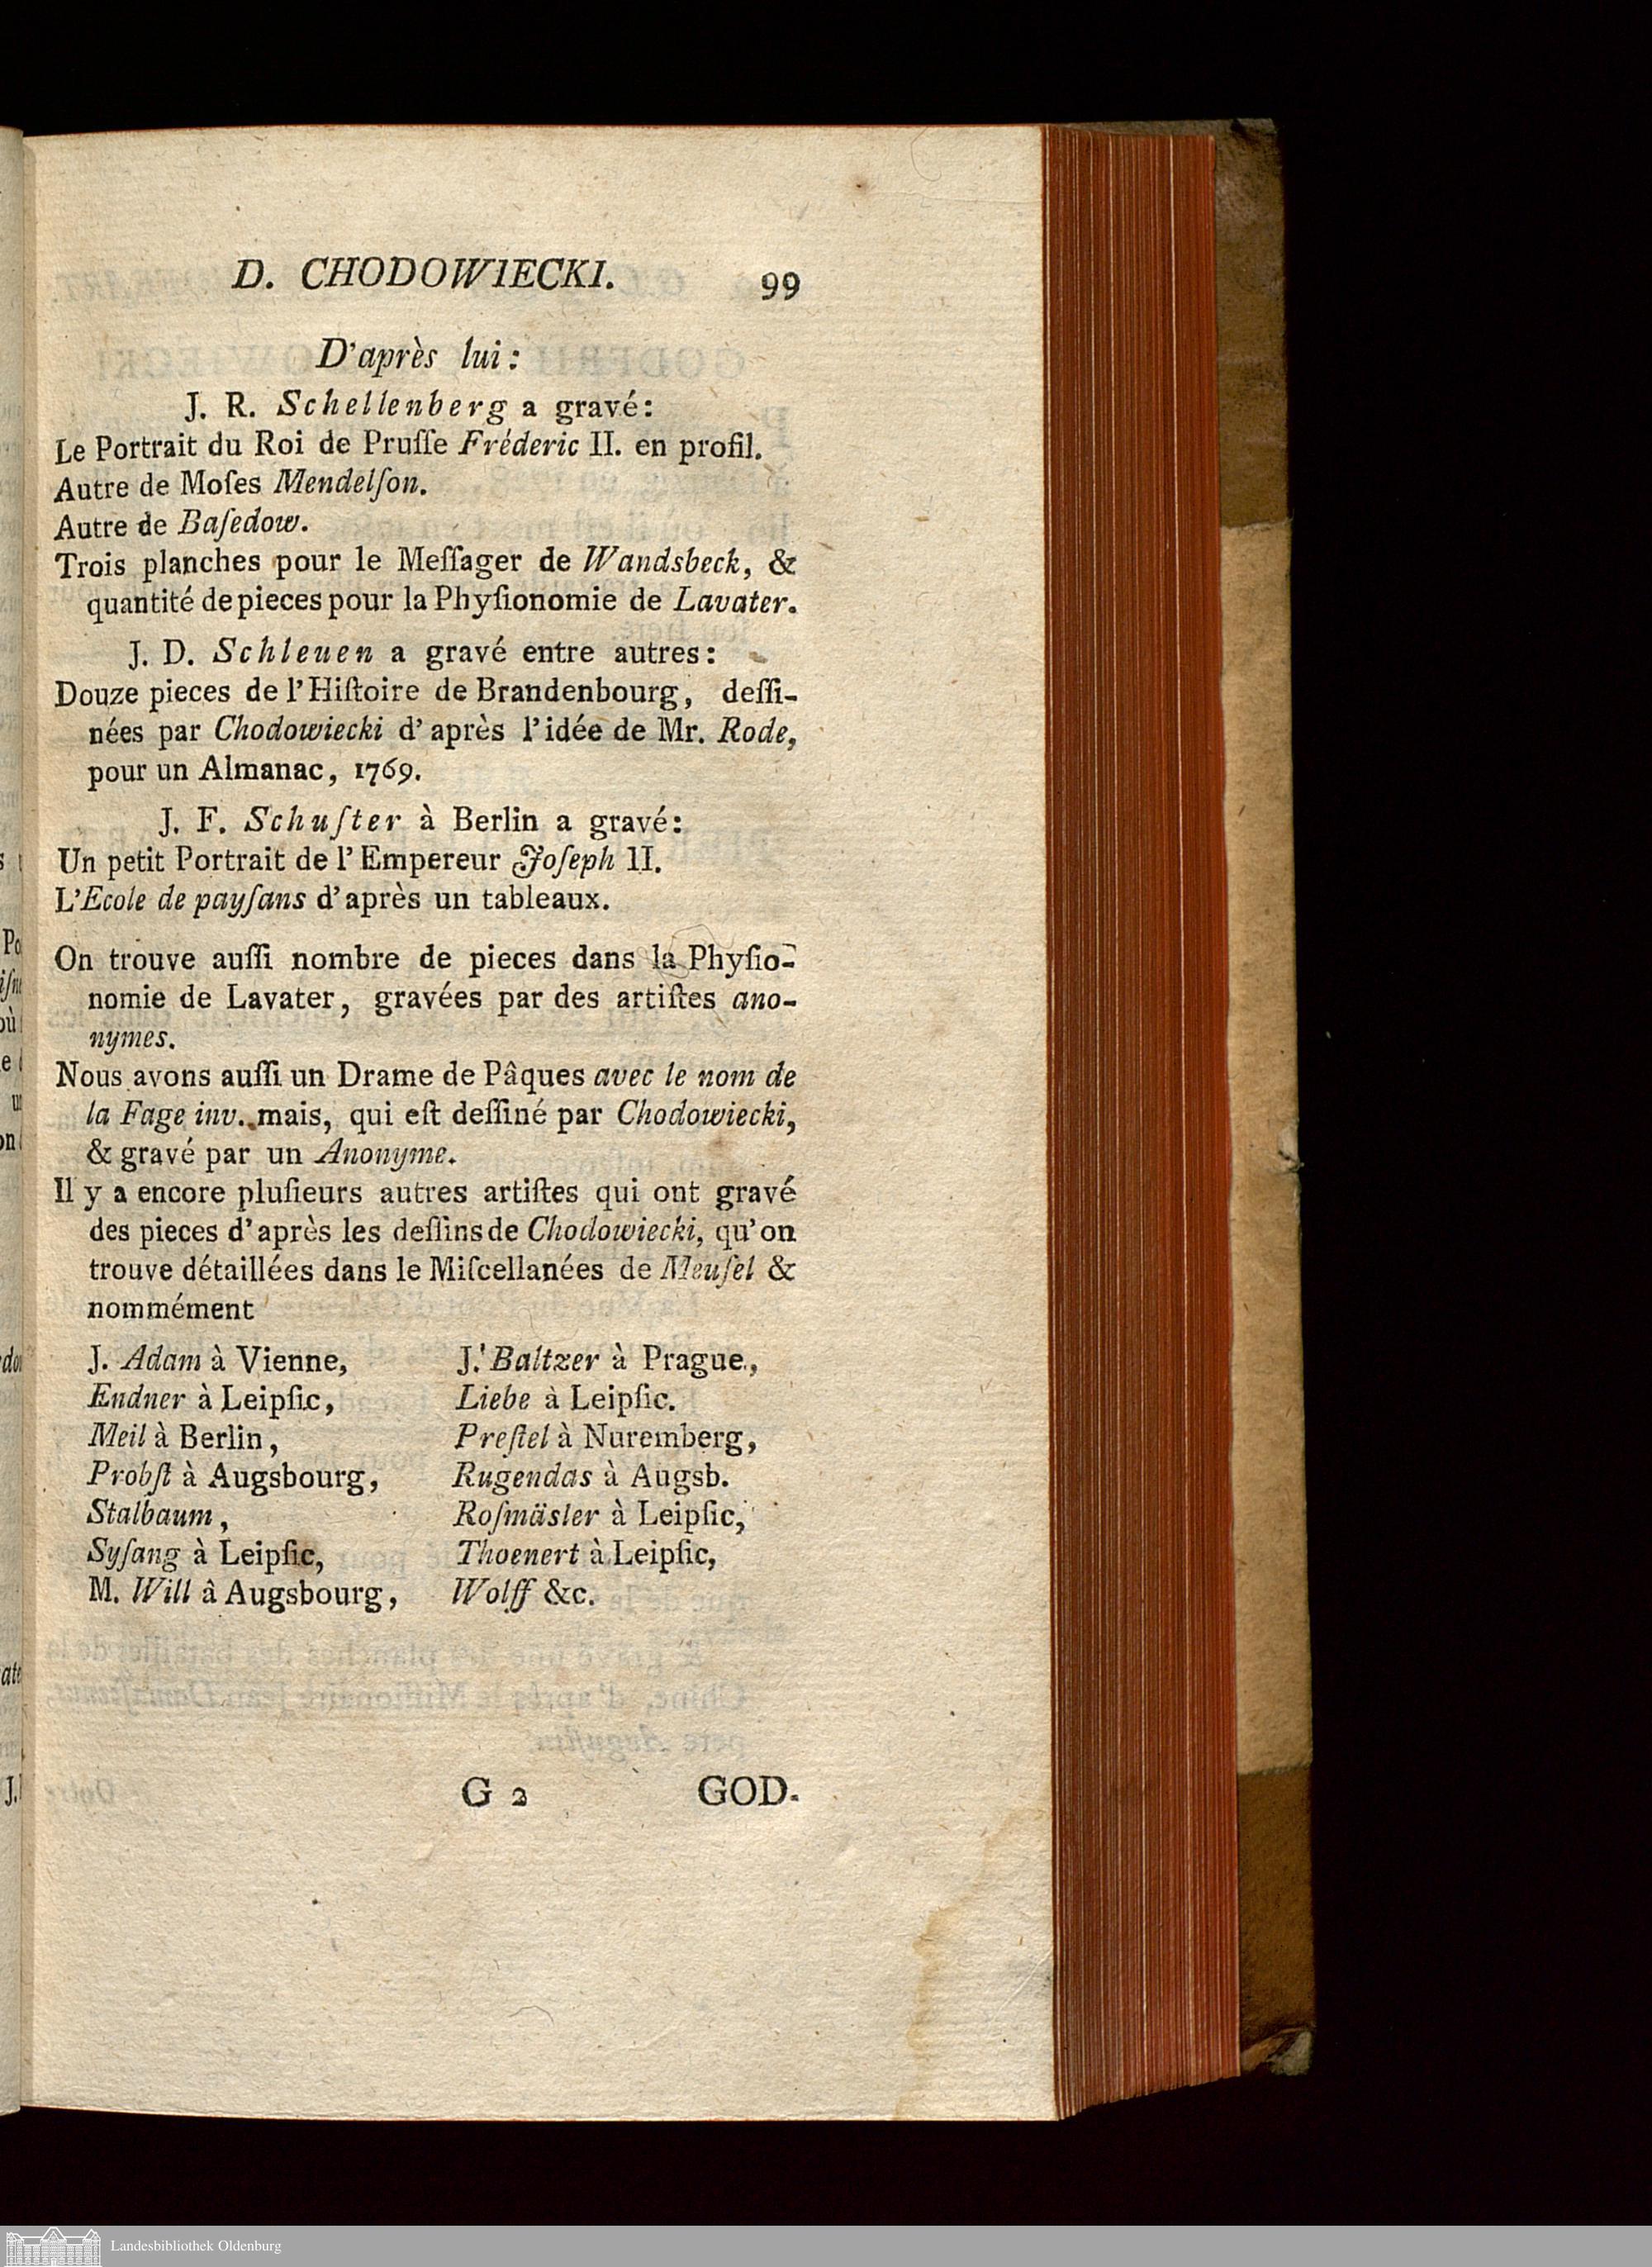 D. CHODOWIECKI. 99
D'après lui:
J. R. Schellenberg a gravé:
Le Portrait du Roi de Pruſſe Fréderic II. en profil.
Autre de Moſes Mendelſon.
Autre de Baſedow.
Trois planches pour le Meſſager de Wandsbeck, &
quantité de pieces pour la Phyſionomie de Lavater.
J. D. Schleuen a gravé entre autres:
Douze pieces de l'Hiſtoire de Brandenbourg, deſſi-
nées par Chodowiecki d'après l'idée de Mr. Rode,
pour un Almanac, 1769.
J. F. Schuſter à Berlin a gravé:
Un petit Portrait de l'Empereur Joſeph II.
L'Ecole de payſans d'après un tableaux.
On trouve auſſi nombre de pieces dans la Phyſio-
nomie de Lavater, gravées par des artiſtes ano-
nymes.
Nous avons auſſi un Drame de Pâques avec le nom de
la Fage inv. mais, qui eſt deſſiné par Chodowiecki,
& gravé par un Anonyme.
Il y a encore pluſieurs autres artiſtes qui ont gravé
des pieces d'après les deſſins de Chodowiecki, qu'on
trouve détaillées dans le Miſcellanées de Meuſel &
nommément
J. Adam à Vienne, J. Baltzer à Prague,
Endner à Leipſic, Liebe à Leipſic.
Meil à Berlin, Preſtel à Nuremberg,
Probſt à Augsbourg, Rugendas à Augsb.
Stalbaum, Roſmäsler à Leipſic,
Syſang à Leipſic, Thoenert à Leipſic,
M. Will â Augsbourg, Wolff &c.
G 2 GOD-
Landesbibliothek Oldenburg